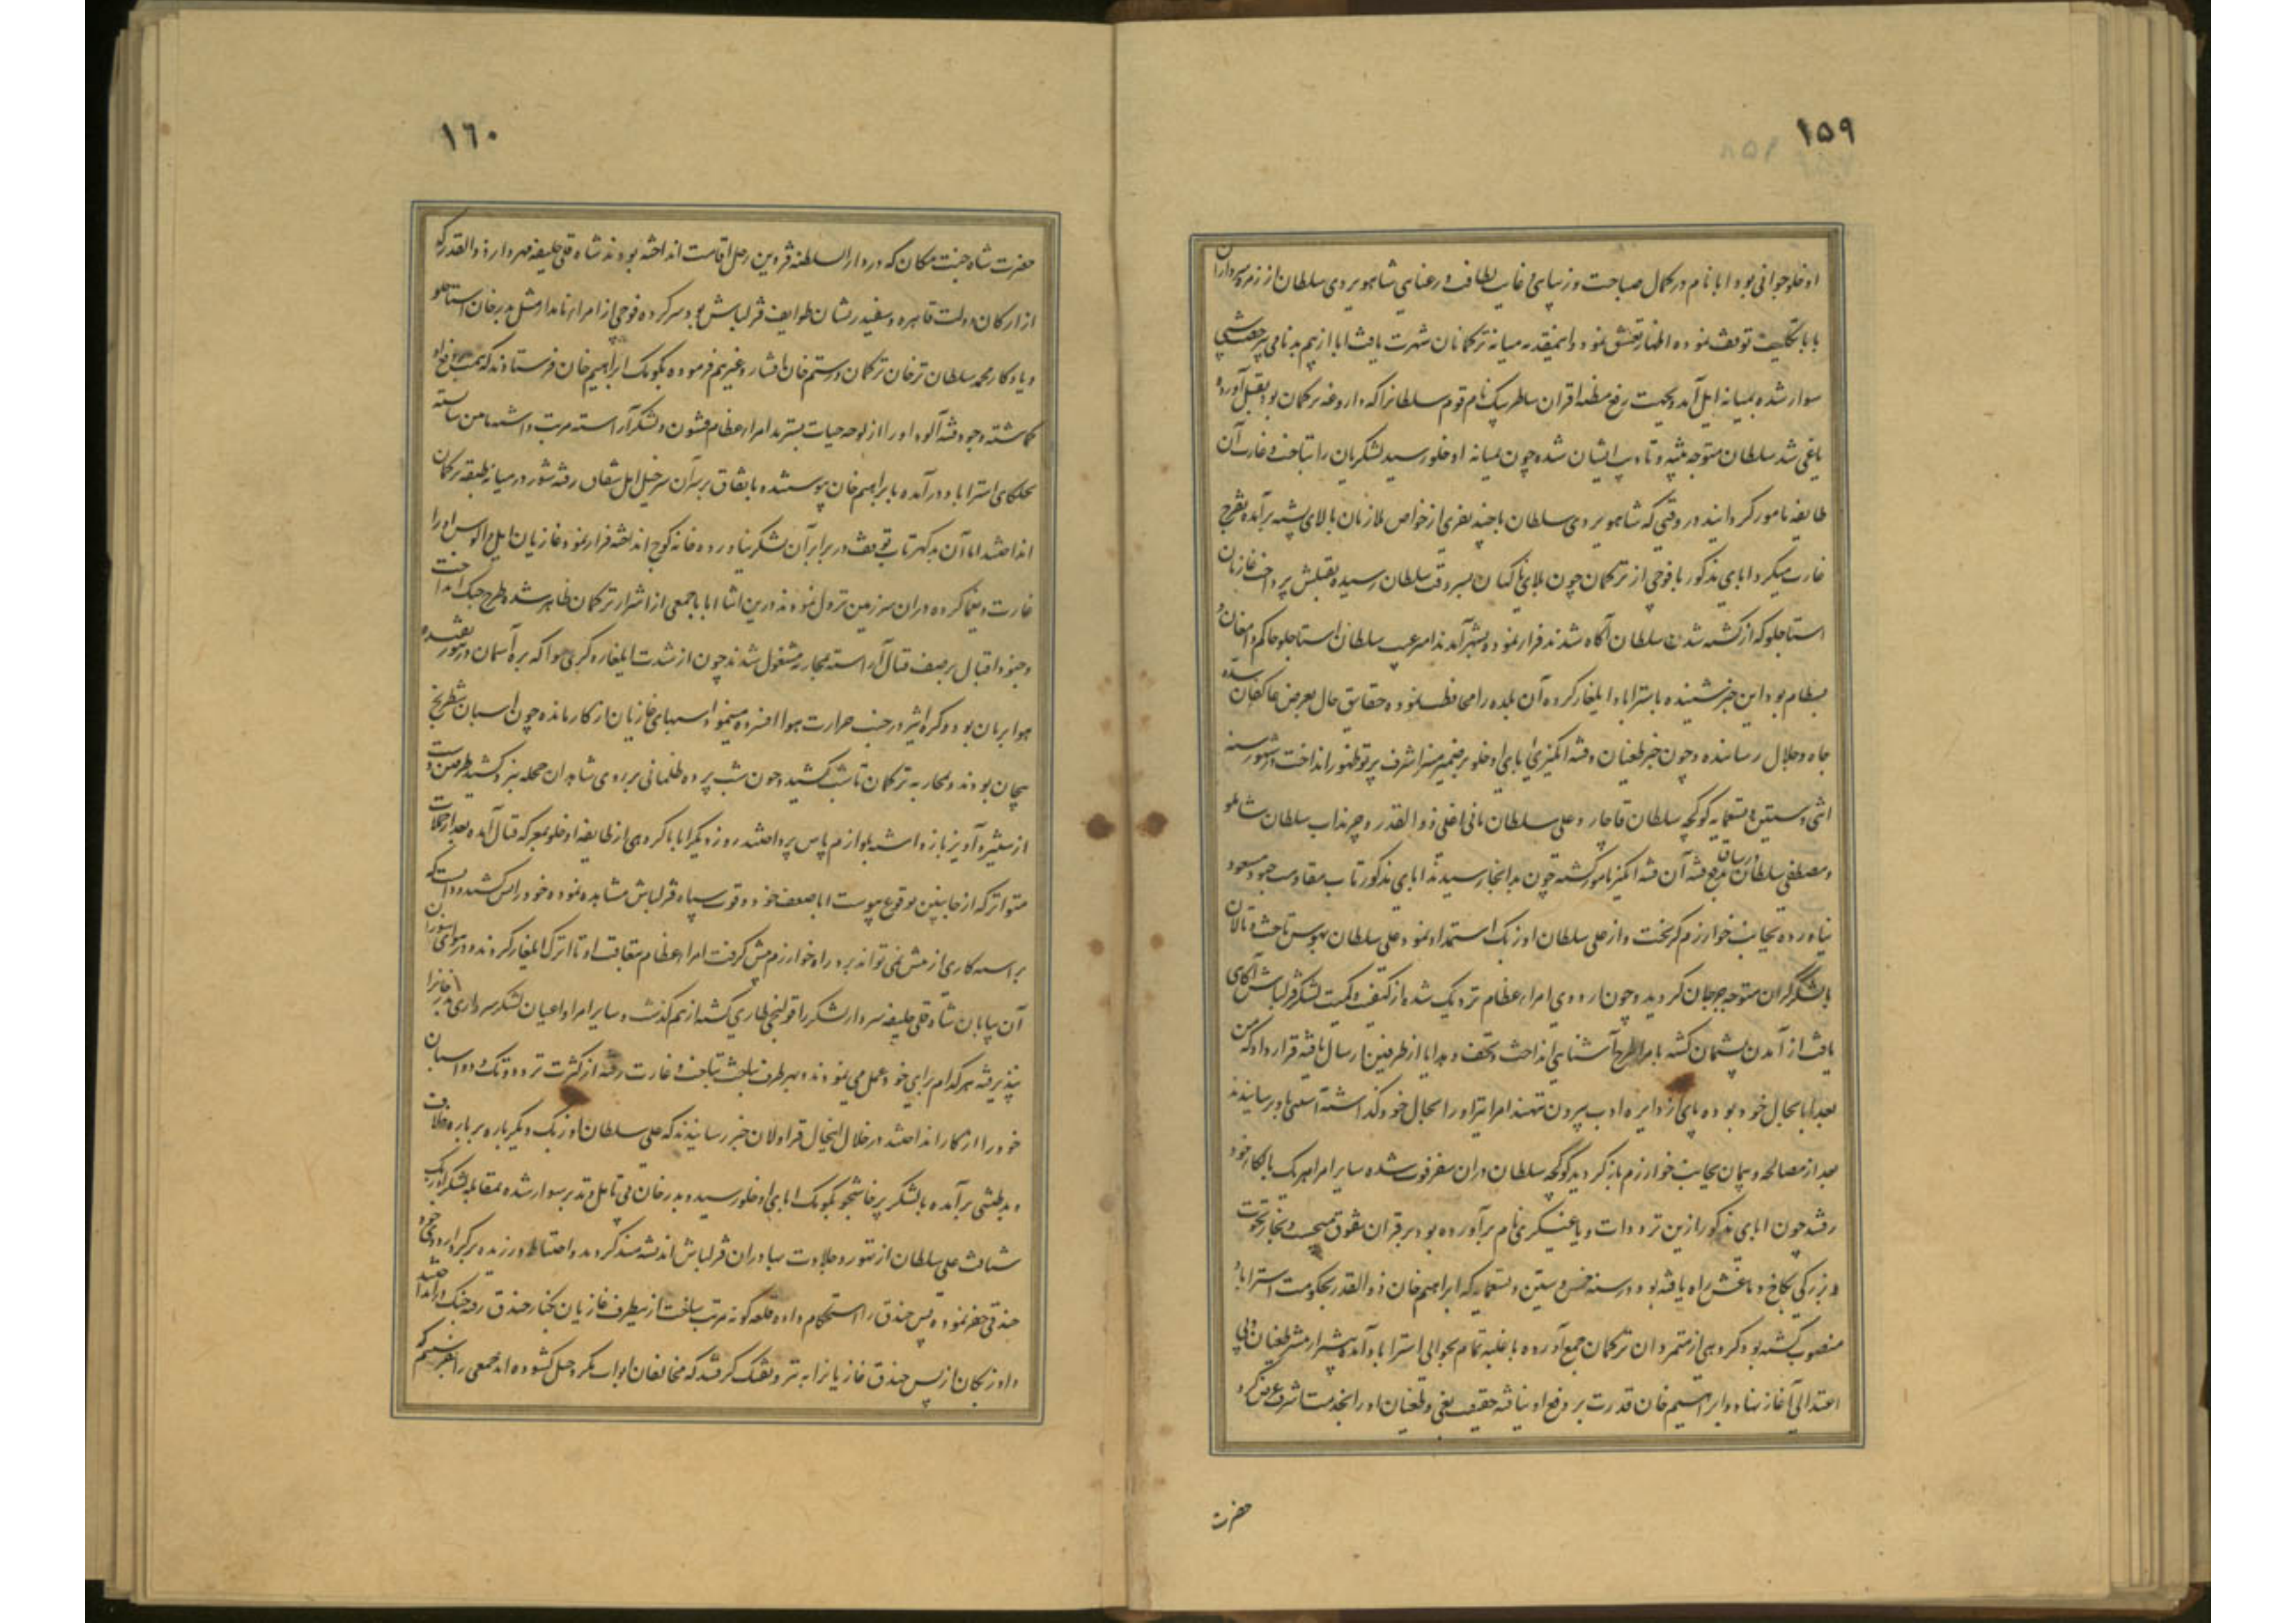 ۱۵۹
اوخلو جوانی بود ابا نام در کمال صباحت و زیبایی و غایت لطافت و رعنایی شاهویردی سلطان از زمره سرداران
بابا تکلیف توقف نموده اظهار تعشق نمود و اینمقدمه میانه ترکمانان شهرت یافت ابا از بیم بدنامی
سوار شده بمیانه ایل آمد و بجهت رفع مظنه اقران شاطر بیک نام قوم سلطانرا که داروغه ترکمان بود بقتل آورده
یاغی شد سلطان متوجه تنبیه و تادیب ایشان شده چون بمیانه اوخلو رسید لشکریان را بتاخت و غارت آن
طایفه نامور گردانید در وقتی که شاهویردی سلطان با چند نفری از خواص ملازمان بالای پشته برآمده تفرج
غارت میکرد ابای مذکور با فوجی از ترکمان چون بلای ناگهان بسر وقت سلطان رسیده بقتلش پرداخت غازیان
استاجلو که از کشته شدن سلطان آگاه شدند فرار نموده بشهر آمدند امیر غیب سلطان استاجلو حاکم دامغان و
بسطام بود این خبر شنیده باستراباد ایلغار کرده آن بلده را محافظت نمود و حقایق حال بعرض عاکفان سده
جاه و جلال رسانیده و چون خبر طغیان و فتنه انگیزی ابای اوخلو بر ضمیر منیر اشرف پرتو ظهور انداخت در شهور سنه
اثنی و ستین و تسعمایه گوکچه سلطان قاجار و علی سلطان تاتی اغلی ذوالقدر و چرنداب سلطان شاملو
و مصطفی سلطان ورساق بدفع فتنه آن فتنه انگیز نامور گشته چون بدانجا رسیدند ابای مذکور تاب مقاومت جنود مسعود
نیاورده بجانب خوارزم گریخت و از علی سلطان اوزبک استمداد نمود و علی سلطان بهوس تاخت و تالان
با لشکر گران متوجه جرجان گردید و چون اردوی امراء عظام نزدیک شده از کیفیت و کمیت لشکر قزلباش آگاهی
یافت از آمدن پشیمان گشته با امرا طرح آشنایی انداخت و تحف و هدایا از طرفین ارسال یافته قرار داد که من
بعد ابا بحال خود بوده پای از دایره ادب بیرون ننهند امرا نیز او را بحال خود گذاشته آسیبی باو نرسانیدند
بعد از مصالحه و پیمان بجانب خوارزم بازگردید گوگچه سلطان در آن سفر فوت شده سایر امرا هر یک بالکاء خود
رفتند چون ابای مذکور ازین ترددات و یاغیگری نام برآورده بود بر اقران تفوق میجست و بخار نخوت
و بزرگی بکاخ دماغش راه یافته بود در سنه خمس و ستین و تسعمایه که ابراهیم خان ذوالقدر بحکومت استراباد
منصوب گشته بود گروهی از متمردان ترکمان جمع آورده با غلبه تمام بحوالی استراباد آمده بیشتر از پیشتر طغیان و بی
اعتدالی آغاز نهاد و ابراهیم خان قدرت بر دفع او نیافته حقیقت بغی و طغیان او را بخدمت اشرف عرض کرد
حضرت
۱٦۰
حضرت شاه جنت مکان که در دارالسلطنه قزوین رحل اقامت انداخته بودند شاه قلی خلیفه مهردار ذوالقدر که
از ارکان دولت قاهره و سفید ریشان طوایف قزلباش بود سرکرده فوجی از امراء نامدار مثل بدر خان استاجلو
و یادگار محمد سلطان ترخان ترکمان و رستم خان افشار و غیرهم فرموده بکومک ابراهیم خان فرستادند که همت بر دفع او
گماشته وجود فتنه آلود او را از لوحه حیات بسترند امراء عظام قشون و لشکر آراسته مرتب داشته
بجلکای استراباد درآمده بابراهیم خان پیوستند و باتفاق بر سر آن سرخیل اهل شقاق رفته شور در میانه طبقه ترکمان
انداختند ابا آن بدگهر تاب توقف در برابر آن لشکر نیاورده خانه کوچ انداخته فرار نمود غازیان ایل و الوس او را
غارت و یغما کرده در آن سرزمین نزول نمودند درین اثنا ابا با جمعی از اشرار ترکمان ظاهر شده طرح جنگ انداخت
و جنود اقبال بر صف قتال آراسته بمحاربه مشغول شدند چون از شدت ایلغار و گرمی هوا که بره آسمان در تنور تفتیده
هوا بریان بود و کره اثیر در جنب حرارت هوا افسرده مینمود اسبهای غازیان از کار مانده چون اسبان شطرنج
بیجان بودند و محاربه ترکمان تا شب کشید و چون شب پرده ظلمانی بر روی شاهدان حجله نبرد کشید طرفین دست
از ستیزه و آویز بازداشته بلوازم پاس پرداختند روز دیگر ابا با گروهی از طایفه اوخلو بمعرکه قتال آمده بعد از حملات
متواتر که از جانبین بوقوع پیوست ابا ضعف خود و قوت سپاه قزلباش مشاهده نموده خود را پس کشید و دانست که
کاری از پیش نمی تواند برد راه خوارزم پیش گرفت امراء عظام بتعاقب او تا اترک ایلغار کردند و در هوای
آن بیابان شاه قلی خلیفه سردار لشکر را قولنجی طاری گشته از هم گذشت و سایر امرا و اعیان لشکر سرداری بدر خانرا
نپذیرفته هر کدام برای خود عمل می نمودند و بهر طرف بتاخت و غارت رفته از کثرت تردد و تک و دو اسبان
خود را از کار انداختند در خلال اینحال قراولان خبر رسانیدند که علی سلطان اوزبک دیگر باره بر باره خلاف
و بدطنتی برآمده با لشکر پرخاشجو بکومک ابای اوخلو رسید و بدر خان بی تامل و تدبر سوار شده بمقابله لشکر اوزبک
شتافت علی سلطان از تهور و جلادت بهادران قزلباش اندیشه مند گردید و احتیاط ورزیده بر گرد اردوی خود
خندقی حفر نموده پس خندق را استحکام داده قلعه گونه مرتب ساخت ازینطرف غازیان بکنار خندق رفته جنگ درانداختند
و اوزبکان از پس خندق غازیانرا به تیر و تفنگ گرفتند که مخالفان ابواب مکر و حیل گشوده اند جمعی را